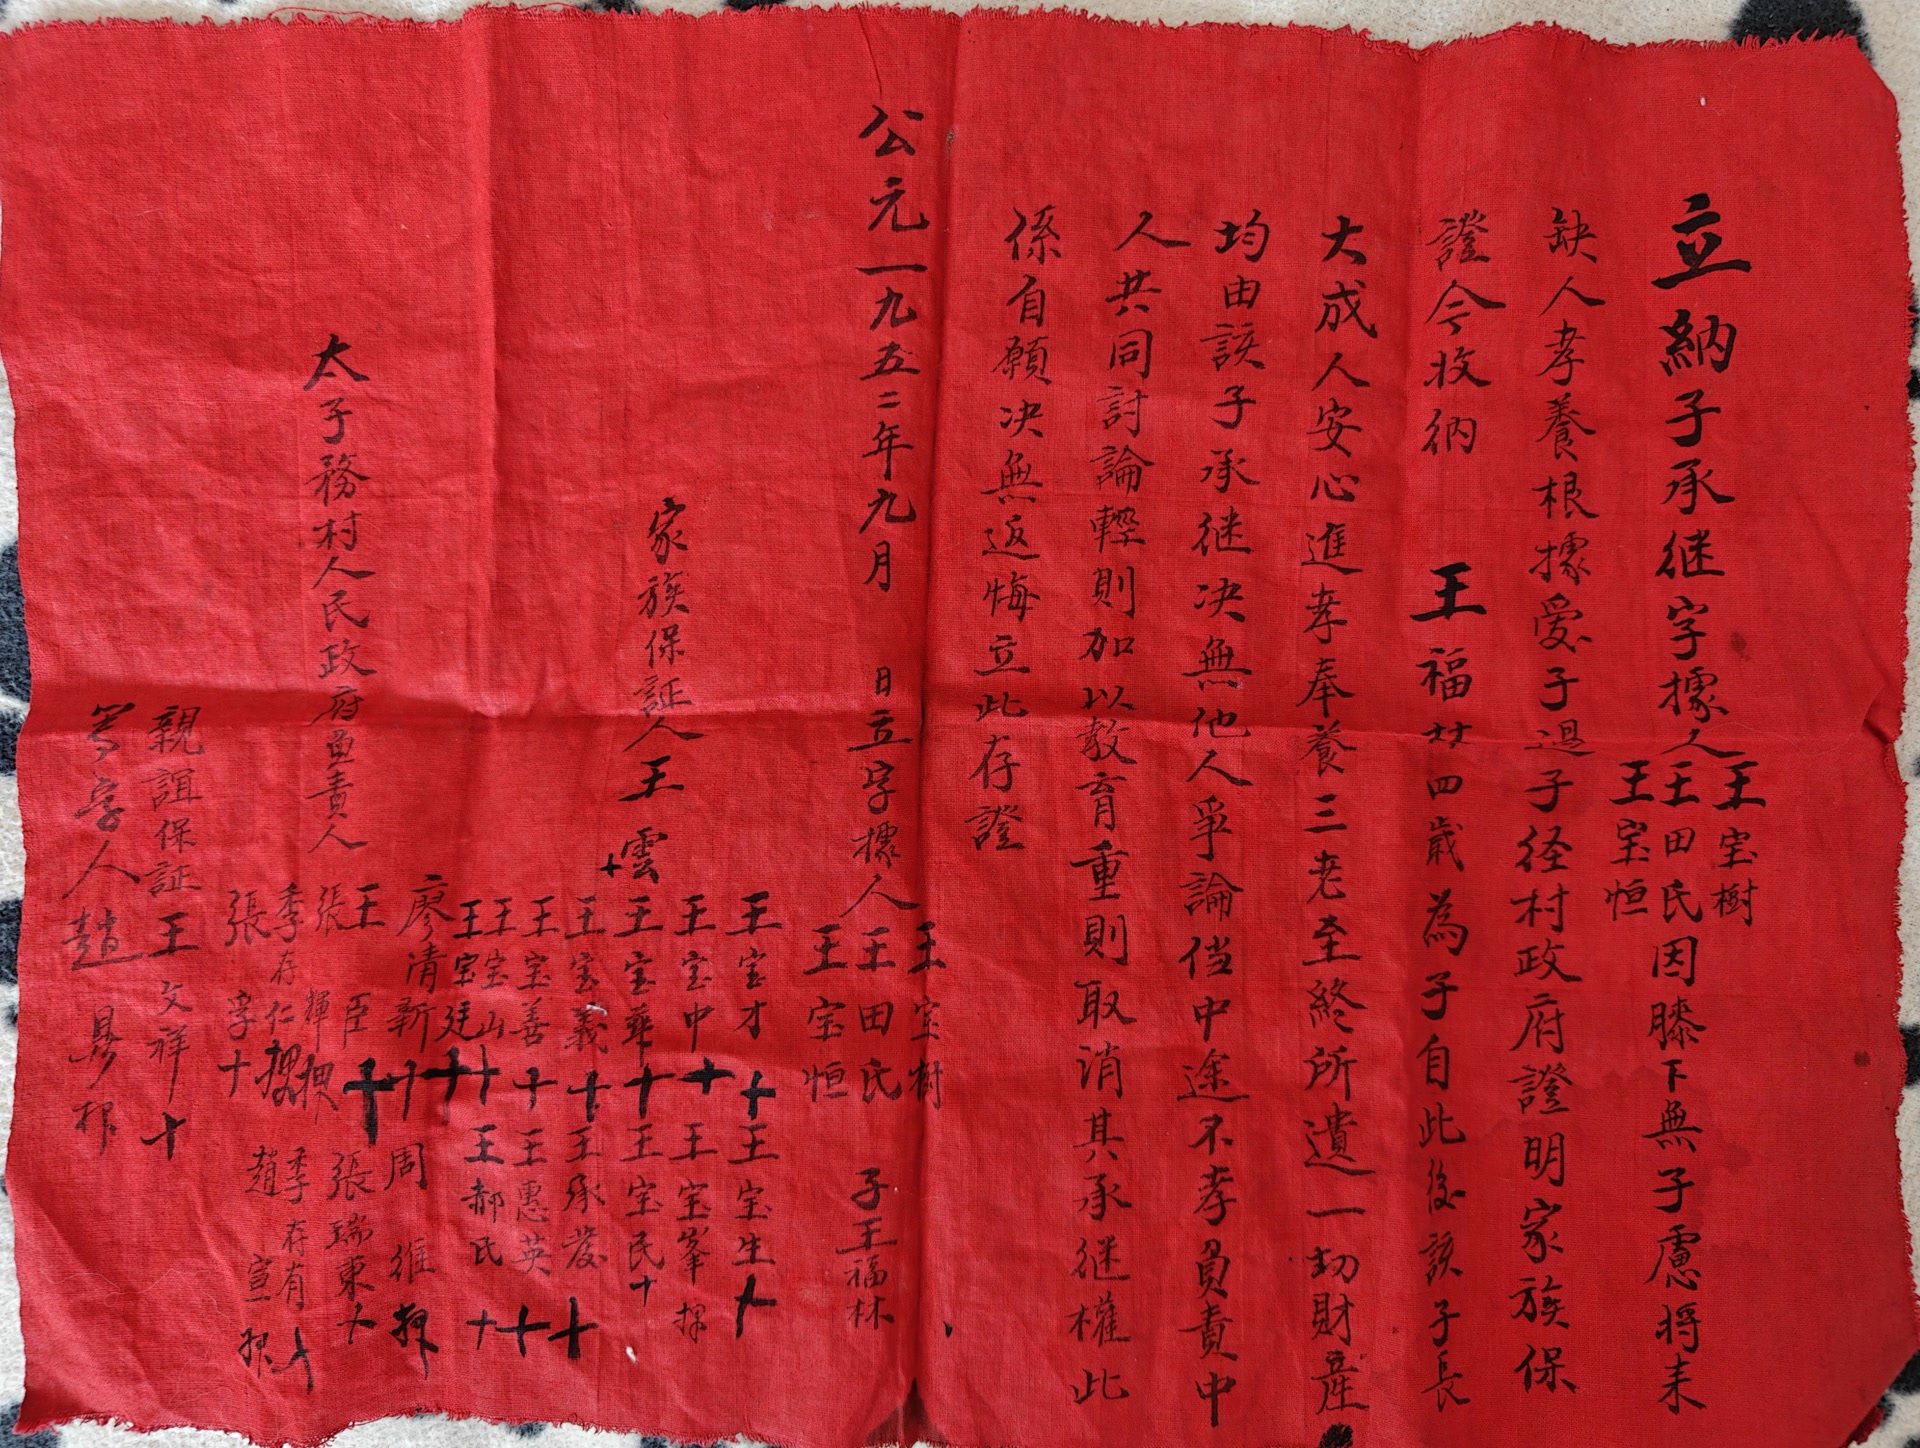 立納子承继字據人王宝樹
王田氏因膝下無子慮將来
王宝恒
缺人孝養根據愛子過子径村政府證明家族保
證今收納 王福廿四歲為子自此後該子長
大成人安心進孝奉養三老至終所遺一切財產
均由該子承继决無他人爭論倘中途不孝負責中
人共同討論輕則加以教育重則取消其承继權此
係自願决無返悔立此存證
公元一九五二年九月 日立字據人王宝樹
王田氏 子王福林
王宝恒
家族保証人王雲十
王宝才十 王宝生十
王宝中十 王宝峯押
王宝華十 王宝民十
王宝義十 王承發十
王宝善十 王惠英十
王宝山十 王郝氏十
王宝廷十
太子務村人民政府負責人
廖清新十 周维押
王臣十 張瑞東十
張輝押
季存仁押 季存有十
張孚十 趙宣押
親誼保証王文祥十
寫字人趙鼎押